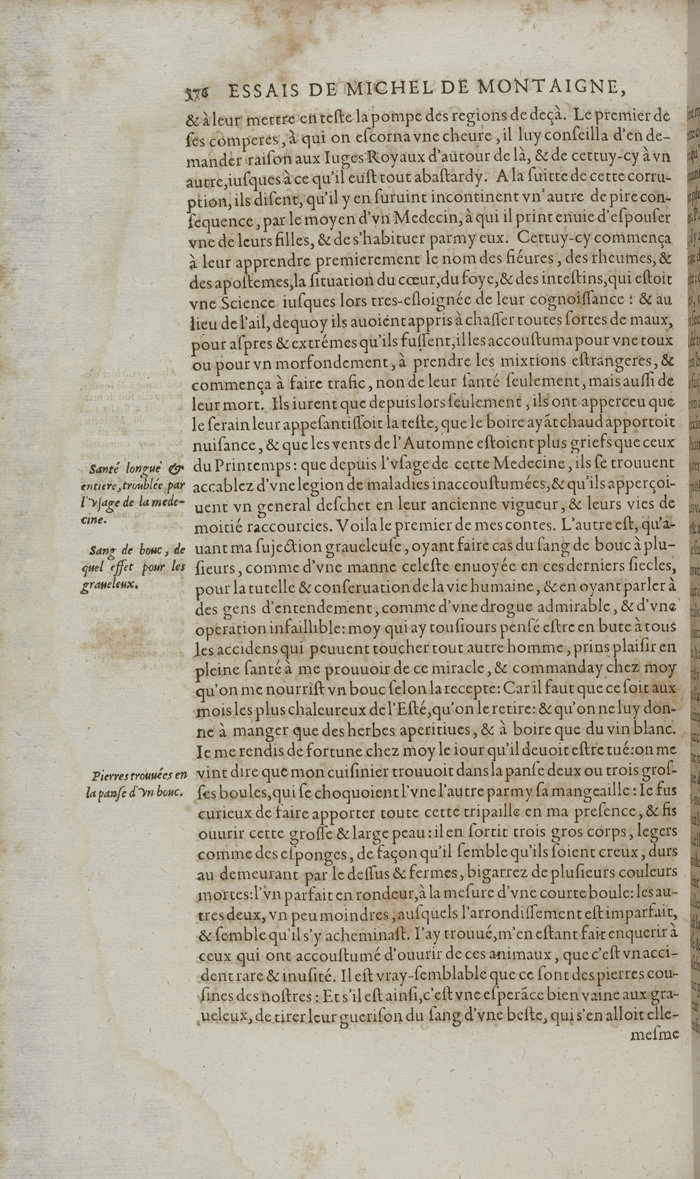 376 ESSAIS DE MICHEL DE MONTAIGNE,
& à leur mettre en teſte la pompe des regions de deçà. Le premier de
ſes comperes, à qui on eſcorna vne cheure, il luy conſeilla d'en de-
mander raiſon aux Iuges Royaux d'autour de là, & de cettuy-cy à vn
autre, iuſques à ce qu'il euſt tout abaſtardy. A la ſuitte de cette corru-
ption, ils diſent, qu'il y en ſuruint incontinent vn' autre de pire con-
ſequence, par le moyen d'vn Medecin, à qui il print enuie d'eſpouſer
vne de leurs filles, & de s'habituer parmy eux. Cettuy-cy commença
à leur apprendre premierement le nom des fiéures, des rheumes, &
des apoſtemes, la ſituation du cœur, du foye, & des inteſtins, qui eſtoit
vne Science iuſques lors tres-eſloignée de leur cognoiſſance: & au
lieu de l'ail, dequoy ils auoient appris à chaſſer toutes ſortes de maux,
pour aſpres & extrémes qu'ils fuſſent, il les accouſtuma pour vne toux
ou pour vn morfondement, à prendre les mixtions eſtrangeres, &
commença à faire trafic, non de leur ſanté ſeulement, mais auſſi de
leur mort. Ils iurent que depuis lors ſeulement, ils ont apperceu que
le ſerain leur appeſantiſſoit la teſte, que le boire ayāt chaud apportoit
nuiſance, & que les vents de l'Automne eſtoient plus griefs que ceux
du Printemps: que depuis l'vſage de cette Medecine, ils ſe trouuent
accablez d'vne legion de maladies inaccouſtumées, & qu'ils apperçoi-
uent vn general deſchet en leur ancienne vigueur, & leurs vies de
moitié raccourcies. Voila le premier de mes contes. L'autre eſt, qu'a-
uant ma ſujection graueleuſe, oyant faire cas du ſang de bouc à plu-
ſieurs, comme d'vne manne celeſte enuoyée en ces derniers ſiecles,
pour la tutelle & conſeruation de la vie humaine, & en oyant parler à
des gens d'entendement, comme d'vne drogue admirable, & d'vne
operation infaillible: moy qui ay touſiours penſé eſtre en bute à tous
les accidens qui peuuent toucher tout autre homme, prins plaiſir en
pleine ſanté à me prouuoir de ce miracle, & commanday chez moy
qu'on me nourriſt vn bouc ſelon la recepte: Car il faut que ce ſoit aux
mois les plus chaleureux de l'Eſté, qu'on le retire: & qu'on ne luy don-
ne à manger que des herbes aperitiues, & à boire que du vin blanc.
Ie me rendis de fortune chez moy le iour qu'il deuoit eſtre tué: on me
vint dire que mon cuiſinier trouuoit dans la panſe deux ou trois groſ-
ſes boules, qui ſe choquoient l'vne l'autre parmy ſa mangeaille: Ie fus
curieux de faire apporter toute cette tripaille en ma preſence, & fis
ouurir cette groſſe & large peau: il en ſortit trois gros corps, legers
comme des eſponges, de façon qu'il ſemble qu'ils ſoient creux, durs
au demeurant par le deſſus & fermes, bigarrez de pluſieurs couleurs
mortes: l'vn parfait en rondeur, à la meſure d'vne courte boule: les au-
tres deux, vn peu moindres, auſquels l'arrondiſſement eſt imparfait,
& ſemble qu'il s'y acheminaſt. I'ay trouué, m'en eſtant fait enquerir à
ceux qui ont accouſtumé d'ouurir de ces animaux, que c'eſt vn acci-
dent rare & inuſité. Il eſt vray-ſemblable que ce ſont des pierres cou-
ſines des noſtres: Et s'il eſt ainſi, c'eſt vne eſperāce bien vaine aux gra-
ueleux, de tirer leur gueriſon du ſang d'vne beſte, qui s'en alloit elle-
meſme
Santé longue &
entiere, troublée par
l'vſage de la mede-
cine.
Sang de bouc, de
quel effet pour les
graueleux.
Pierres trouuées en
la panſe d'vn bouc.